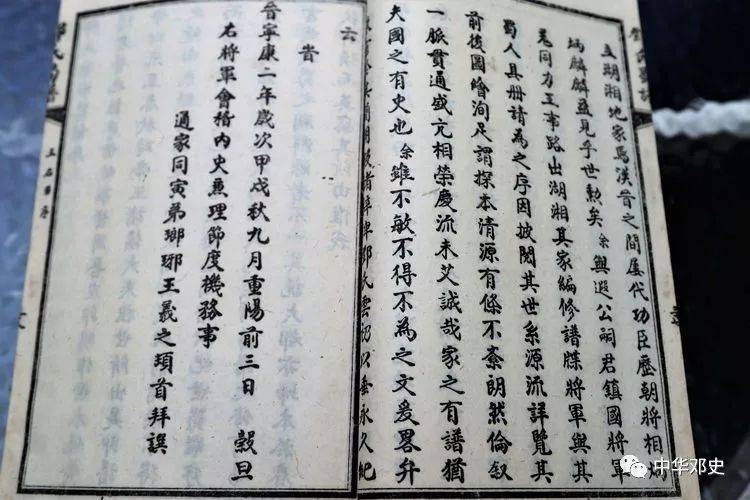 立湖湘地家焉漢晉之間屢代功臣歷朝將相炳
炳麟麟盈見乎世勲矣余與遐公祠君鎮國將軍
同力王事路出湖湘其家編修譜牒將軍與其
蜀人具册請為之序因披閱其世系源流詳覽其
前後圖繪洵足謂探本清源有條不紊朗然倫叙
一脈貫通盛亢相榮慶流未艾誠哉家之有譜猶
夫國之有史也余雖不敏不得不為之文爰畧弁
鄧氏雲礽以垂永久紀
云
旹
晉寧康二年歲次甲戌秋九月重陽前三日 穀旦
右將軍會稽內史兼理節度機務事
通家同寅弟瑯琊王羲之頓首拜譔
中华邓史